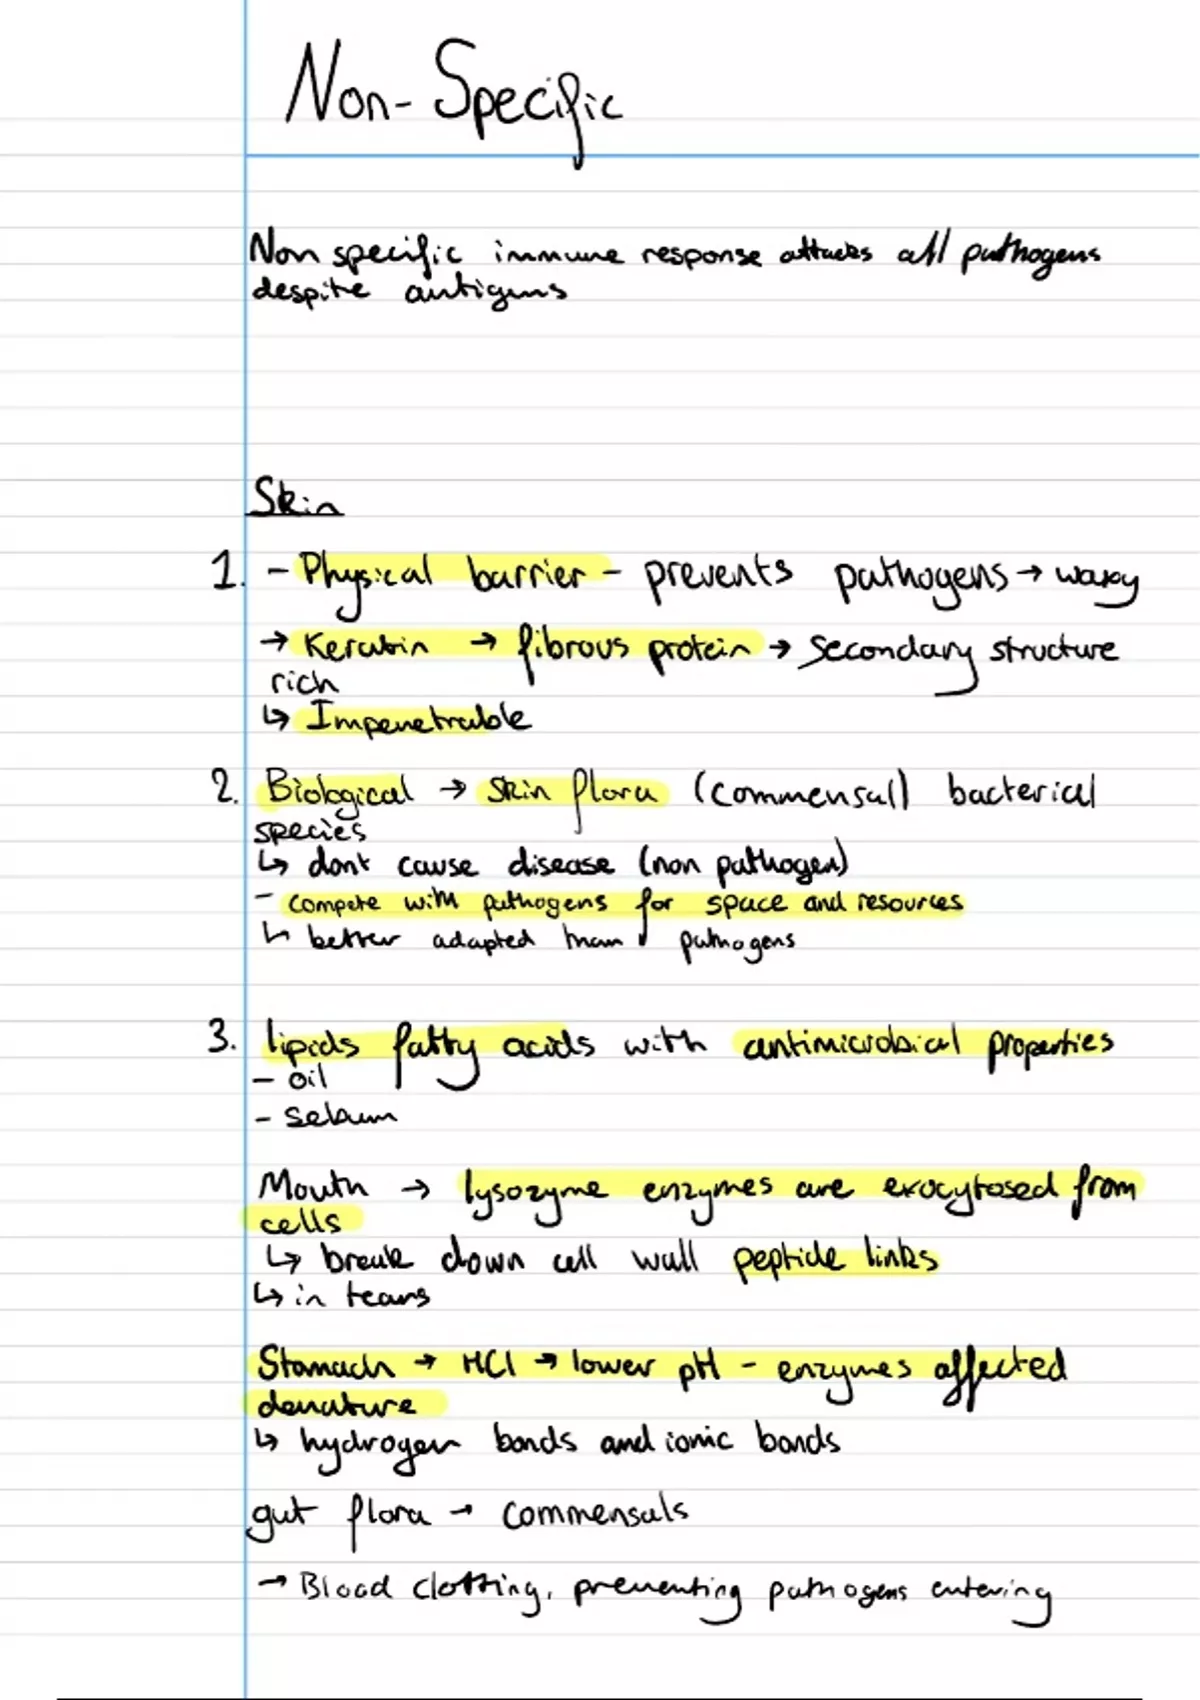 Non-Specific
Non specific immune response attacks all pathogens
despite antigens
Skin
1. - Physical barrier - prevents pathogens → waxy
→ Keratin → fibrous protein → Secondary structure
rich
↳ Impenetrable
2. Biological → skin flora (commensal) bacterial
species
↳ dont cause disease (non pathogen)
- compete with pathogens for space and resources
↳ better adapted than pathogens
3. lipids fatty acids with antimicrobial properties
- oil
- sebum
Mouth → lysozyme enzymes are exocytosed from
cells
↳ break down cell wall peptide links
↳ in tears
Stomach → HCl → lower pH - enzymes affected
denature
↳ hydrogen bonds and ionic bonds
gut flora → commensals
→ Blood clotting, preventing pathogens entering